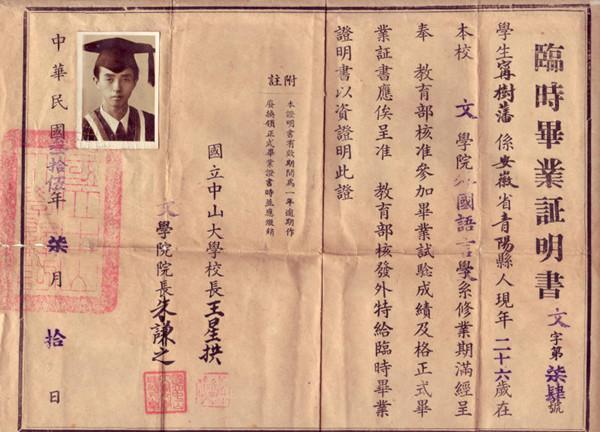 臨時畢業証明書 文字第柒肆號
學生甯樹藩 係安徽省青陽縣人現年二十六歲在
本校 文 學院外國語言學系修業期滿經呈
奉 教育部核准參加畢業試驗成績及格正式畢
業証書應俟呈准 教育部核發外特給臨時畢業
證明書以資證明此證
附註
本證明書有效期間為一年逾期作
廢換領正式畢業證書時並應繳銷
國立中山大學校長王星拱
文學院院長朱謙之
中華民國叁拾伍年柒月拾日